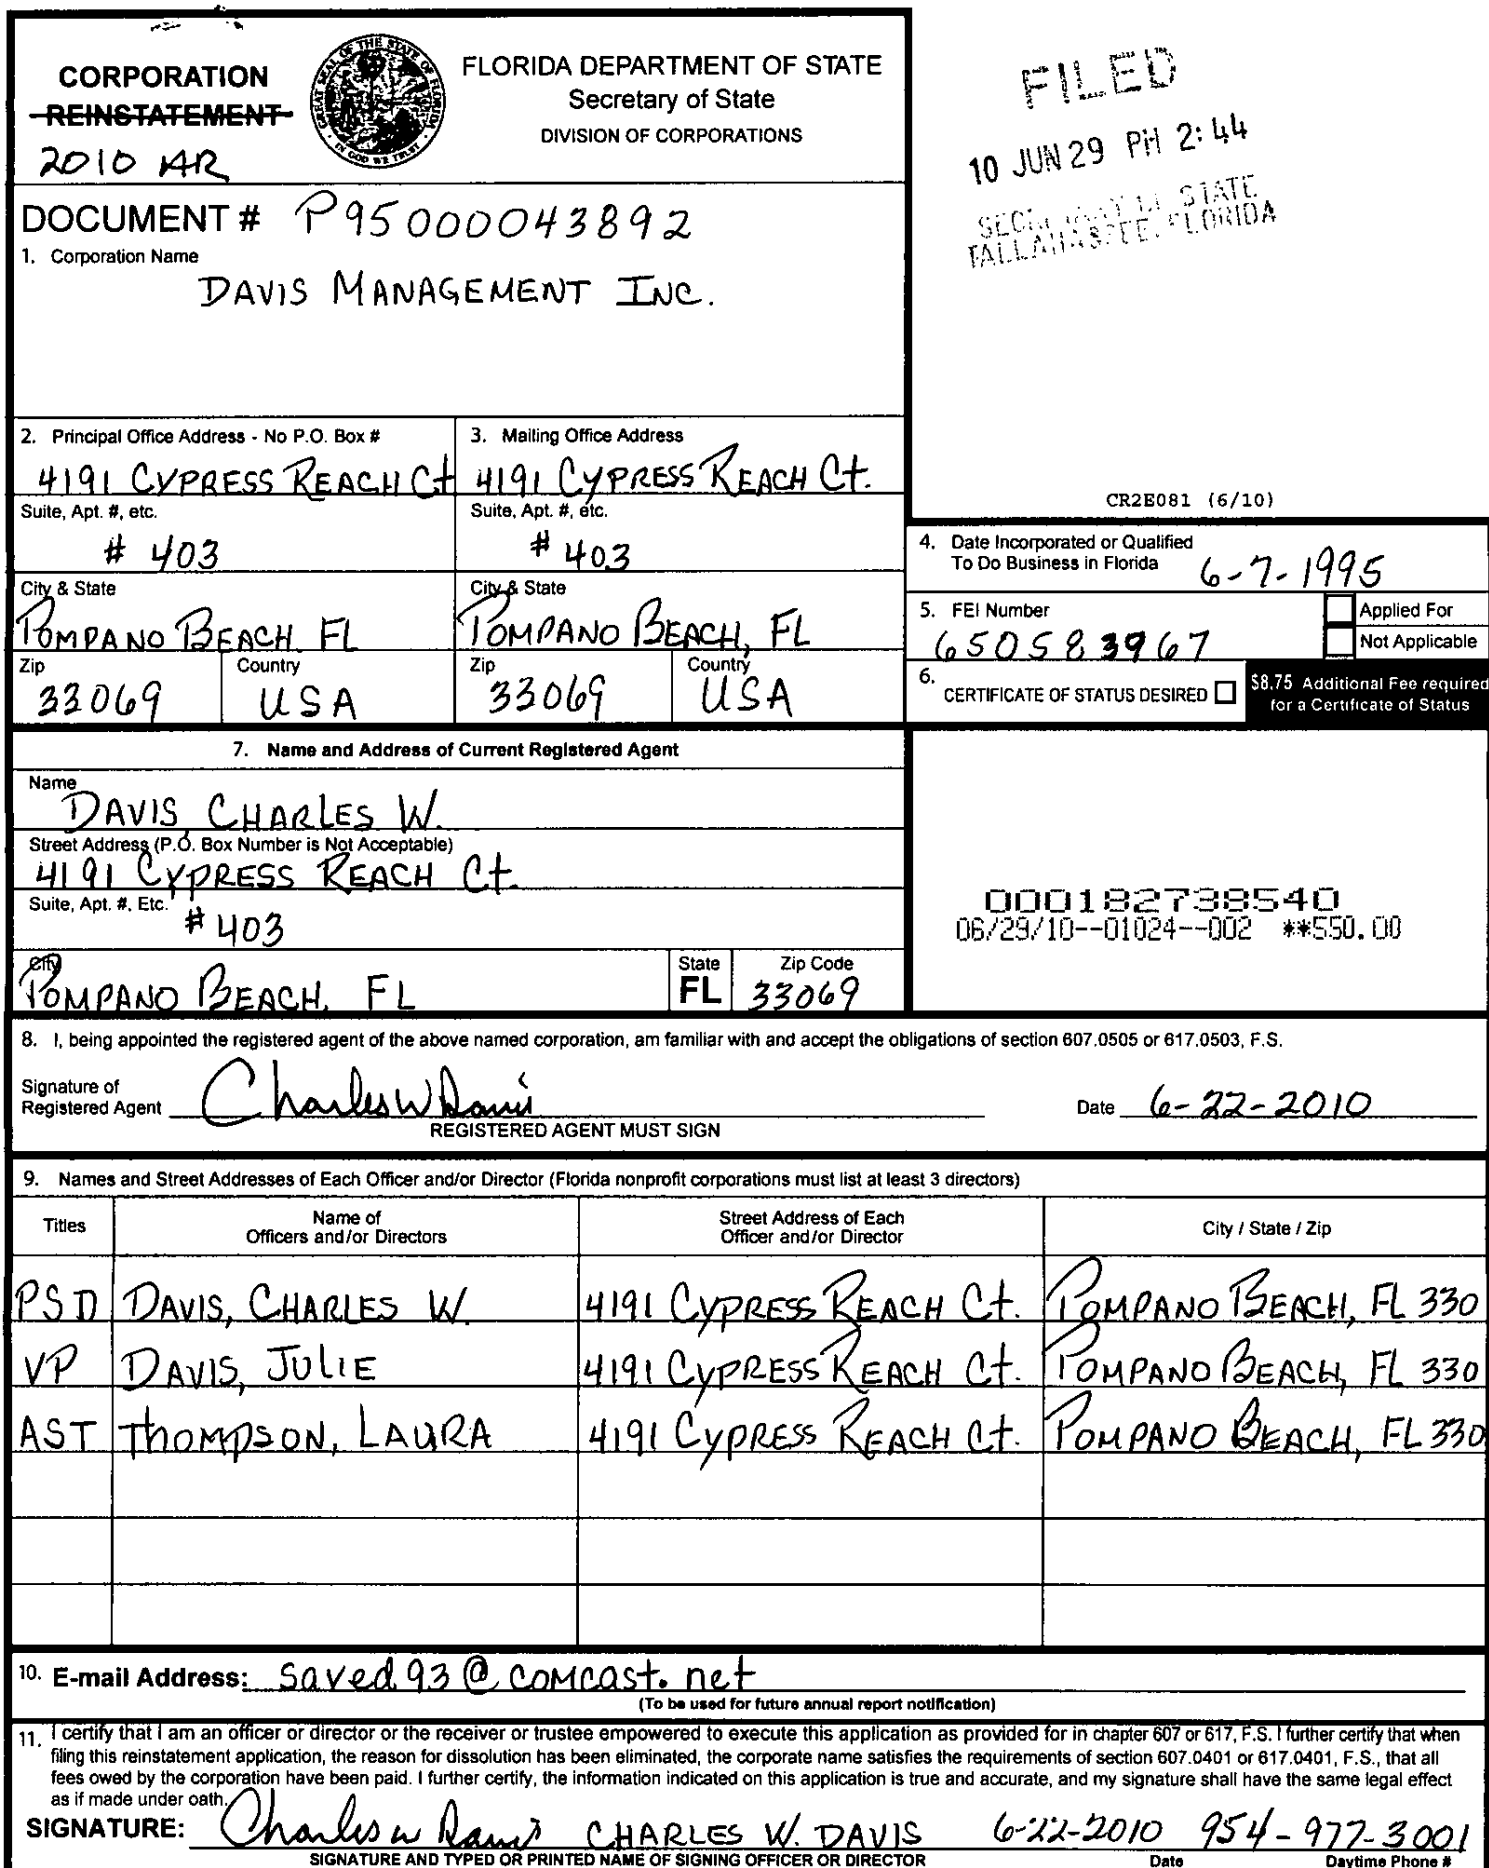 CORPORATION
REINSTATEMENT
2010 AR
FLORIDA DEPARTMENT OF STATE
Secretary of State
DIVISION OF CORPORATIONS
FILED
10 JUN 29 PM 2:44
STATE
TALLAHASSEE, FLORIDA
DOCUMENT # P95000043892
1. Corporation Name
DAVIS MANAGEMENT INC.
2. Principal Office Address - No P.O. Box #
4191 CYPRESS REACH Ct
Suite, Apt. #, etc.
# 403
City & State
POMPANO BEACH, FL
Zip
33069
Country
USA
3. Mailing Office Address
4191 CYPRESS REACH Ct.
Suite, Apt. #, etc.
# 403
City & State
POMPANO BEACH, FL
Zip
33069
Country
USA
CR2E081 (6/10)
4. Date Incorporated or Qualified
To Do Business in Florida 6-7-1995
5. FEI Number
650583967
Applied For
Not Applicable
6. CERTIFICATE OF STATUS DESIRED
$8.75 Additional Fee required
for a Certificate of Status
7. Name and Address of Current Registered Agent
Name
DAVIS, CHARLES W.
Street Address (P.O. Box Number is Not Acceptable)
4191 CYPRESS REACH Ct.
Suite, Apt. #, Etc.
# 403
City
POMPANO BEACH, FL
State
FL
Zip Code
33069
000182738540
06/29/10--01024--002 **550.00
8. I, being appointed the registered agent of the above named corporation, am familiar with and accept the obligations of section 607.0505 or 617.0503, F.S.
Signature of
Registered Agent Charles W Davis
Date 6-22-2010
REGISTERED AGENT MUST SIGN
9. Names and Street Addresses of Each Officer and/or Director (Florida nonprofit corporations must list at least 3 directors)
Titles
Name of
Officers and/or Directors
Street Address of Each
Officer and/or Director
City / State / Zip
PSD DAVIS, CHARLES W. 4191 CYPRESS REACH Ct. POMPANO BEACH, FL 330
VP DAVIS, JULIE 4191 CYPRESS REACH Ct. POMPANO BEACH, FL 330
AST THOMPSON, LAURA 4191 CYPRESS REACH Ct. POMPANO BEACH, FL 330
10. E-mail Address: saved93@comcast.net
(To be used for future annual report notification)
11. I certify that I am an officer or director or the receiver or trustee empowered to execute this application as provided for in chapter 607 or 617, F.S. I further certify that when
filing this reinstatement application, the reason for dissolution has been eliminated, the corporate name satisfies the requirements of section 607.0401 or 617.0401, F.S., that all
fees owed by the corporation have been paid. I further certify, the information indicated on this application is true and accurate, and my signature shall have the same legal effect
as if made under oath.
SIGNATURE: Charles W Davis CHARLES W. DAVIS 6-22-2010 954-977-3001
SIGNATURE AND TYPED OR PRINTED NAME OF SIGNING OFFICER OR DIRECTOR Date Daytime Phone #